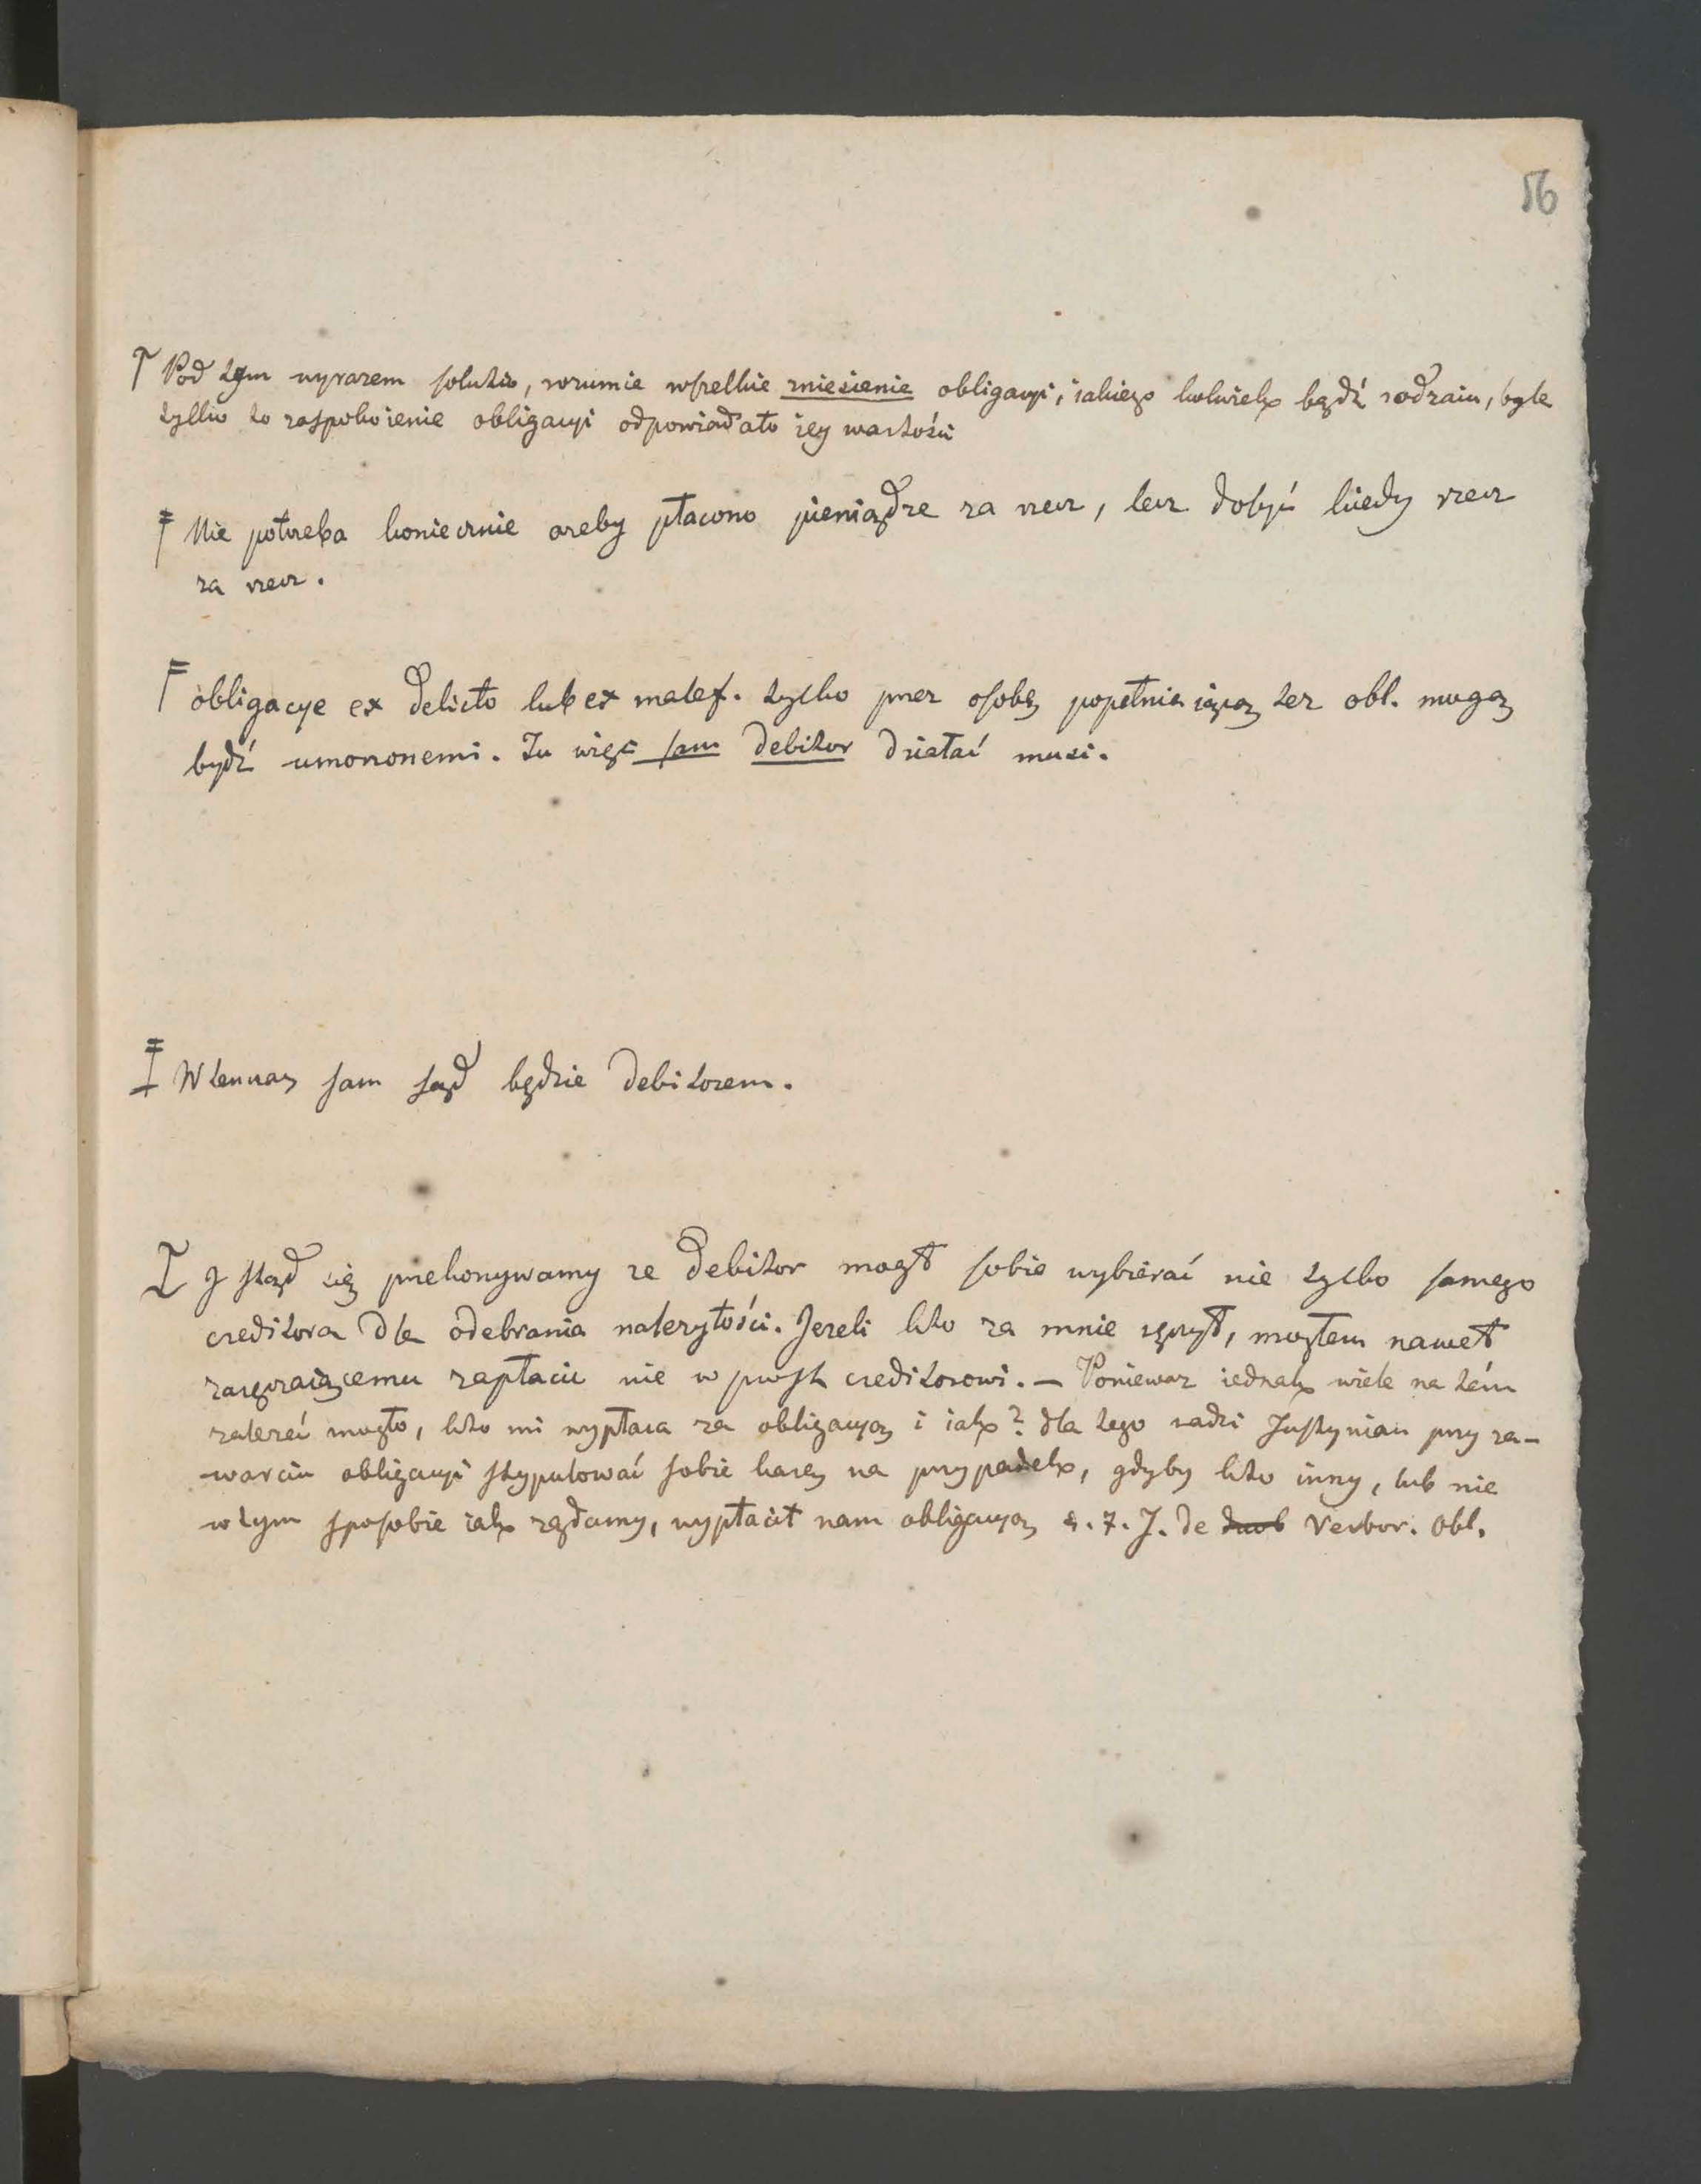 56
Pod tym wyrazem solutio, rozumie wszelkie zniesienie obligacyi, iakiego kolwiek bądź rodzaiu, byle
tylko to zaspokoienie obligacyi odpowiadało iey wartości
Nie potrzeba koniecznie azeby płacono pieniądze za rzecz, lecz dosyć kiedy rzecz
za rzecz.
obligacye ex delicto lub ex malef. tylko przez osobę popełniaiącą tez obl. mogą
bydź umorzonemi. Tu więc sam debitor działać musi.
Wtenczas sam sąd będzie debitorem.
I stąd się przekonywamy ze debitor mógł sobie wybierać nie tylko samego
creditora dla odebrania nalezytości. Jezeli kto za mnie ręczył, mogłem nawet
zaręczaiącemu zapłacić nie w prost creditorowi. — Poniewaz iednak wiele na tém
zalezeć mogło, kto mi wypłaca za obligacyą i iak? dla tego radzi Justynian przy za-
warciu obligacyi stypulować sobie karę na przypadek, gdyby kto inny, lub nie
w tym sposobie iak ządamy, wypłacił nam obligacyą §. 7. J. de duob Verbor. Obl.